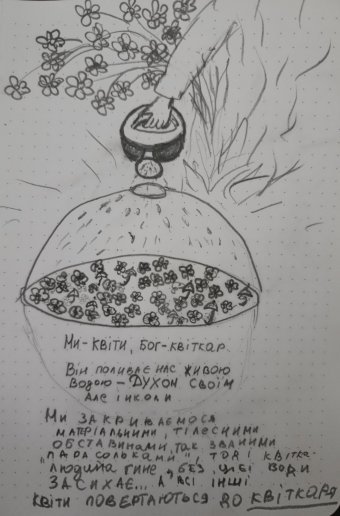 Ми-квіти, Бог-квіткар
Він поливає нас живою
водою – ДУХОМ своїм
Але інколи
Ми закриваємося
матеріальними, тілесними
обставинами, так званими
„парасольками", тоді квітка-
людина гине „без цієї води
засихає... А всі інші
квіти повертаються до квіткаря